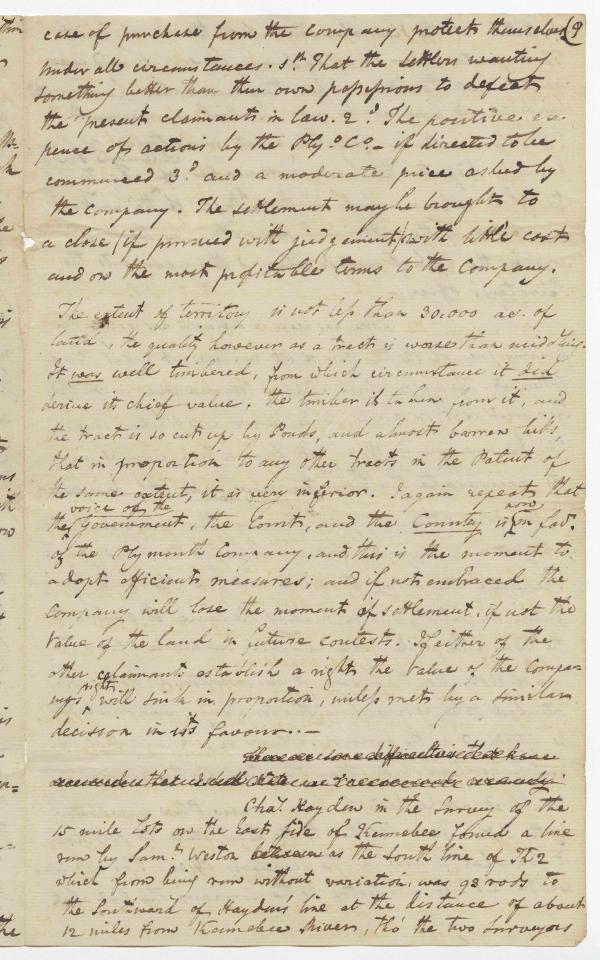 case of purchase from the Company protects themselves (9
under all circumstances. 1st. That the settlers wanting
something better than their own possessions to defeat
the present claimants in law. 2d The positive ex-
pence of actions by the Ply.o Co- if directed to be
commenced 3d and a moderate price asked by
the Company. The settlement may be brought to
a close (if pursued with judgement) with little cost
and on the most profitable terms to the Company.
The extent of territory is not less than 30,000 ac. of
land, the quality however as a tract is worse than middling.
It was well timbered, from which circumstance it did
derive its chief value. the timber is taken from it, and
the tract is so cut up by Ponds, and almost barren hills,
that in proportion to any other tracts in the Patent of
the same extent, it is very inferior. I again repeat that
voice of the
the Government, the Court, and the Country is now in fav.r
of the Plymouth Company, and this is the moment to
adopt efficient measures; and if not embraced the
Company will lose the moment of settlement, if not the
value of the land in future contests. If either of the
other claimants establish a right the value of the Compa-
ny's right will sink in proportion, unless met by a similar
decision in its favour..-
Chas. Hayden in the Survey of the
15 mile Lots on the East side of Kennebec found a line
run by Saml. Weston between as the South line of
which from being run without variation, was 93 rods to
the Southward of Hayden's line at the distance of about
12 miles from Kennebec River, tho' the two Surveyors